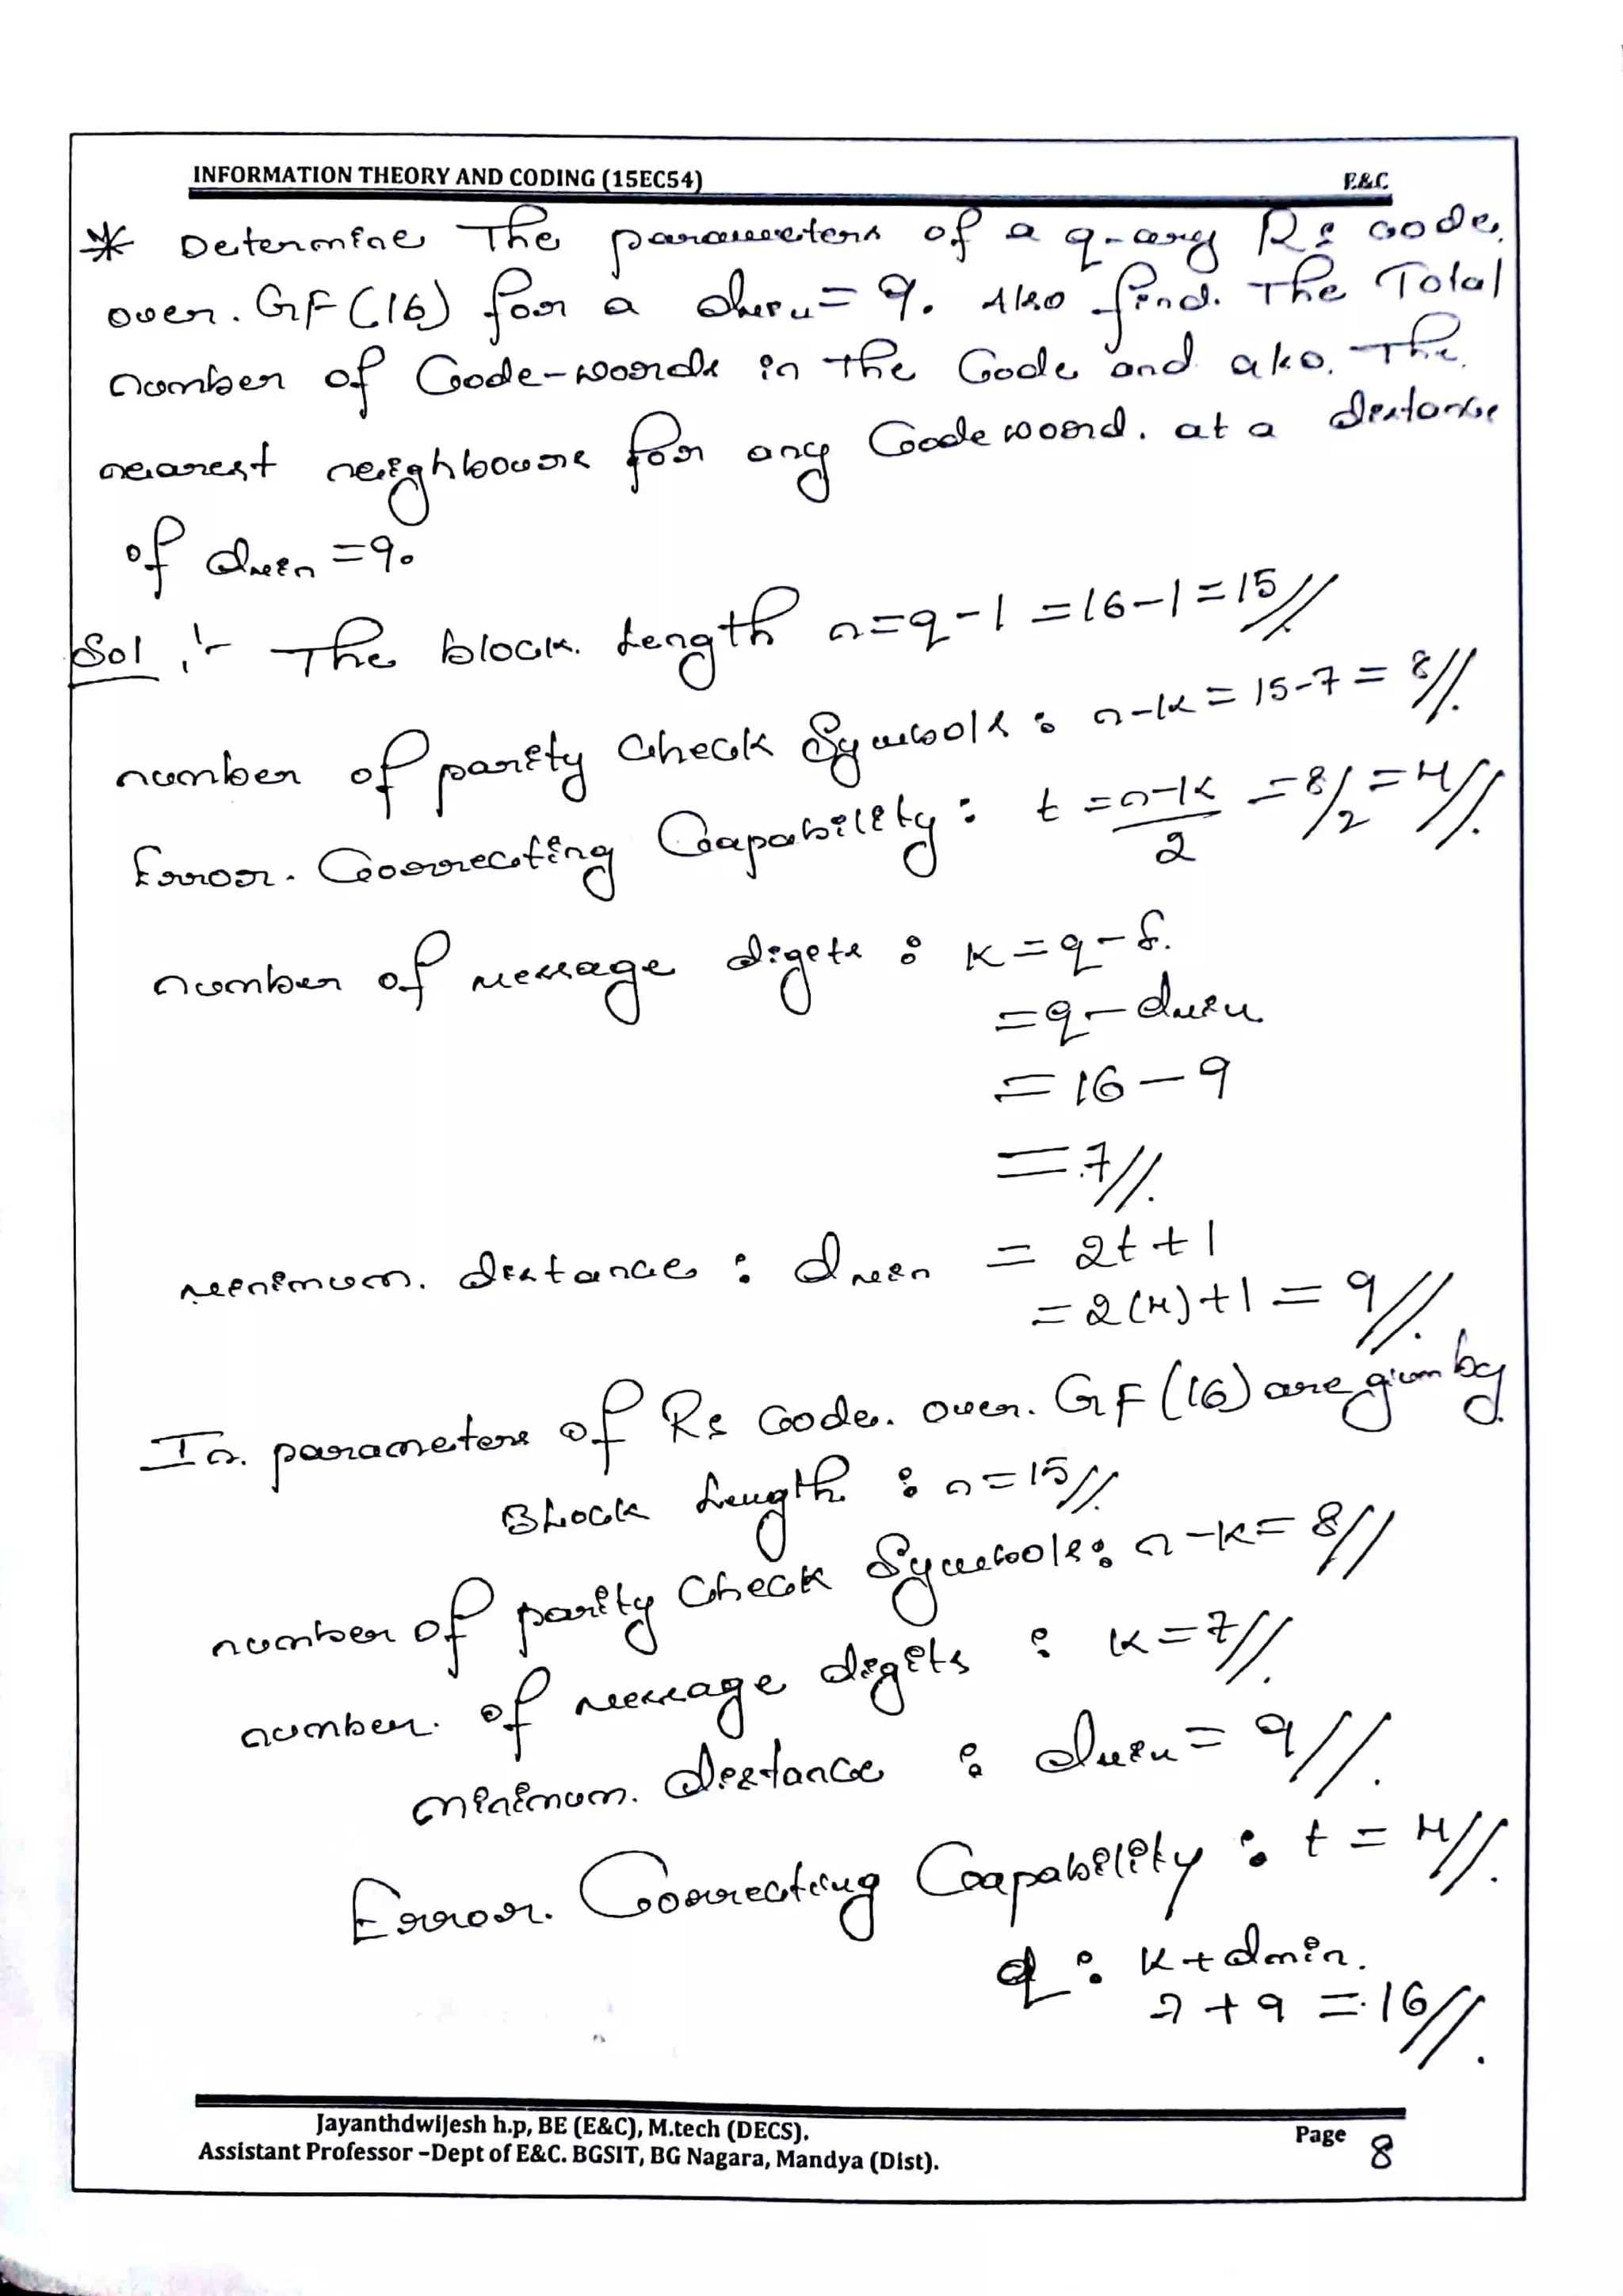 INFORMATION THEORY AND CODING (15EC54) E&C
* Determine The parameters of a q-ary Rs code.
over. GF(16) for a dmin = 9. Also find. The Total
number of Code-words in The Code and also. The.
nearest neighbours for any Code word. at a distance
of dmin = 9.
Sol :- The block. Length n = q-1 = 16-1 = 15//
number of parity Check Symbols : n-k = 15-7 = 8//.
Error. Correcting Capability : t = n-k/2 = 8/2 = 4//.
number of message digets : K = q-δ.
= q - dmin
= 16 - 9
= 7//.
minimum. distance : dmin = 2t+1
= 2(4)+1 = 9//.
In. parameters of Rs Code. over. GF(16) are given by
Block Length : n = 15//.
number of parity Check Symbols : n-k = 8//
number. of message digits : K = 7//.
minimum. distance : dmin = 9//.
Error. Correcting Capability : t = 4//.
q : K + dmin.
7 + 9 = 16//.
Jayanthdwijesh h.p, BE (E&C), M.tech (DECS).
Assistant Professor –Dept of E&C. BGSIT, BG Nagara, Mandya (Dist).
Page 8